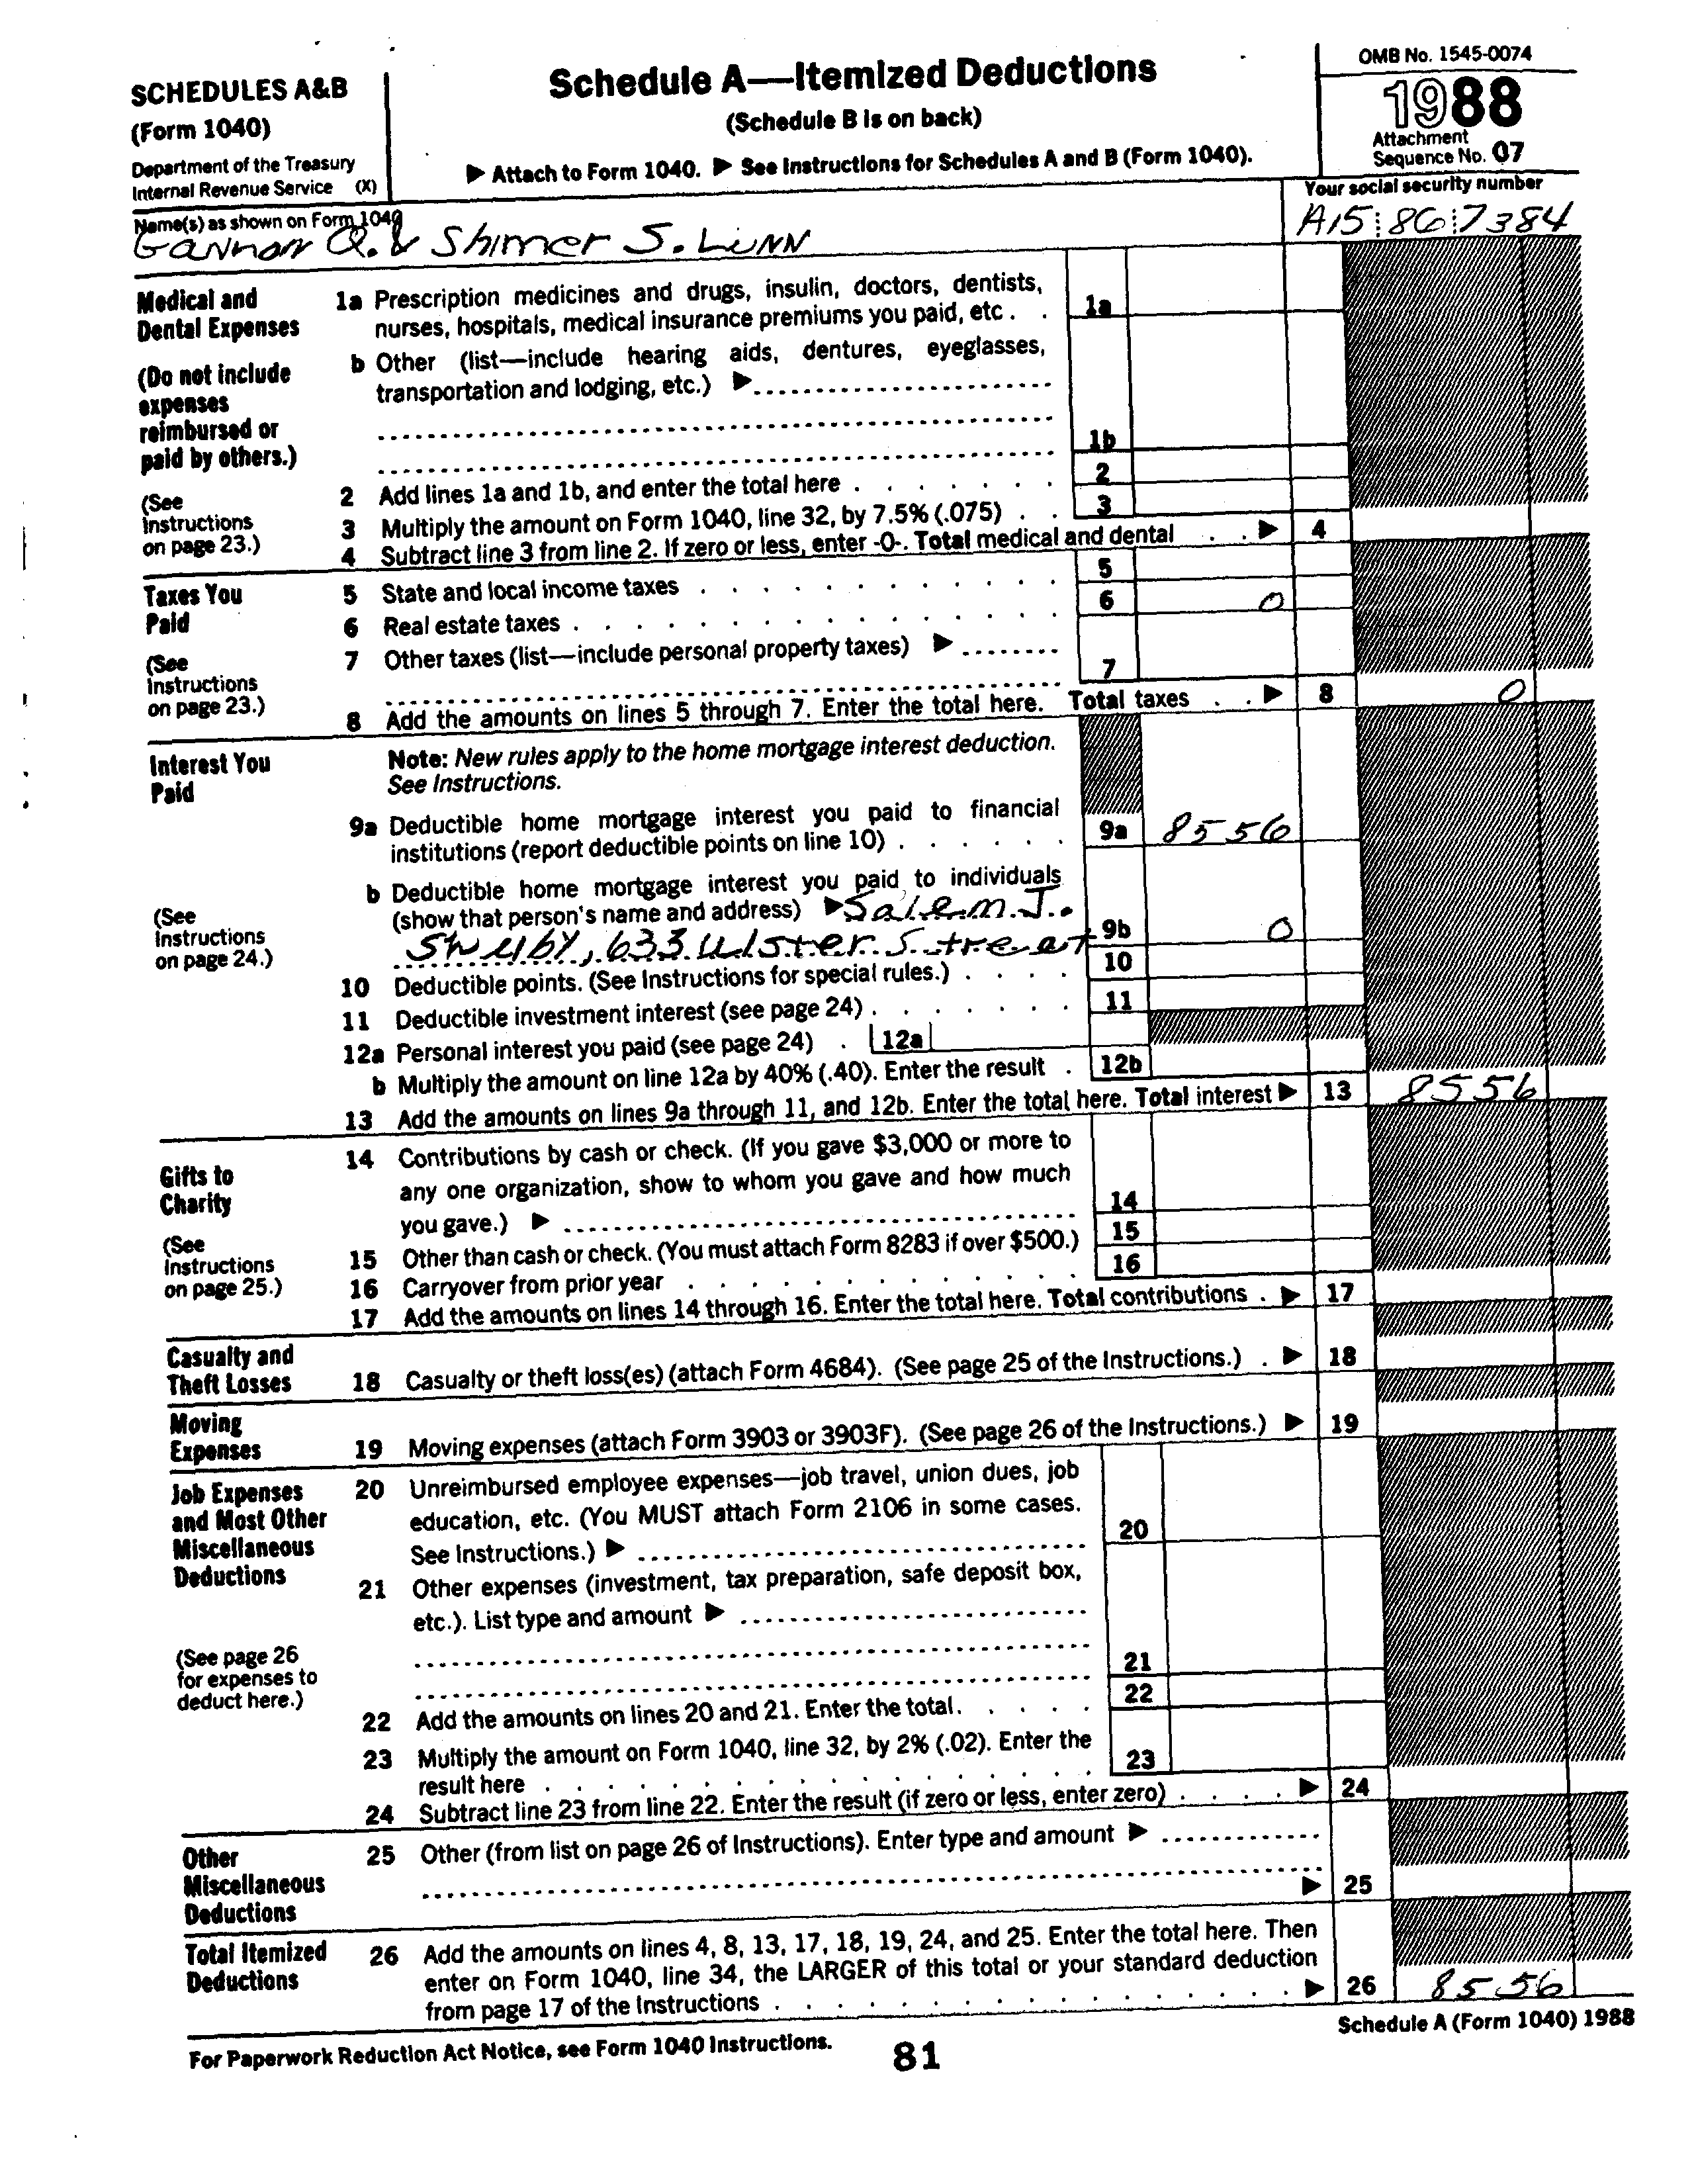 SCHEDULES A&B
(Form 1040)
Department of the Treasury
Internal Revenue Service (X)
Schedule A—Itemized Deductions
(Schedule B is on back)
▶ Attach to Form 1040. ▶ See Instructions for Schedules A and B (Form 1040).
OMB No. 1545-0074
1988
Attachment
Sequence No. 07
Name(s) as shown on Form 1040
Gannon Q. & Shimer S. Linn
Your social security number
A15 86 7384
Medical and
Dental Expenses
(Do not include
expenses
reimbursed or
paid by others.)
(See
Instructions
on page 23.)
1a Prescription medicines and drugs, insulin, doctors, dentists,
nurses, hospitals, medical insurance premiums you paid, etc . . 1a
b Other (list—include hearing aids, dentures, eyeglasses,
transportation and lodging, etc.) ▶
1b
2 Add lines 1a and 1b, and enter the total here . . . . . . . 2
3 Multiply the amount on Form 1040, line 32, by 7.5% (.075) . . 3
4 Subtract line 3 from line 2. If zero or less, enter -0-. Total medical and dental . . ▶ 4
Taxes You
Paid
(See
Instructions
on page 23.)
5 State and local income taxes . . . . . . . . . . . . 5
6 Real estate taxes . . . . . . . . . . . . . . . 6 0
7 Other taxes (list—include personal property taxes) ▶
7
8 Add the amounts on lines 5 through 7. Enter the total here. Total taxes . . ▶ 8 0
Interest You
Paid
(See
Instructions
on page 24.)
Note: New rules apply to the home mortgage interest deduction.
See Instructions.
9a Deductible home mortgage interest you paid to financial
institutions (report deductible points on line 10) . . . . . . 9a 8556
b Deductible home mortgage interest you paid to individuals
(show that person's name and address) ▶ Salem J.
Shuby, 633 Ulster Street 9b 0
10 Deductible points. (See Instructions for special rules.) . . . . 10
11 Deductible investment interest (see page 24) . . . . . . . 11
12a Personal interest you paid (see page 24) . 12a
b Multiply the amount on line 12a by 40% (.40). Enter the result . 12b
13 Add the amounts on lines 9a through 11, and 12b. Enter the total here. Total interest ▶ 13 8556
Gifts to
Charity
(See
Instructions
on page 25.)
14 Contributions by cash or check. (If you gave $3,000 or more to
any one organization, show to whom you gave and how much
you gave.) ▶ 14
15 Other than cash or check. (You must attach Form 8283 if over $500.) 15
16 Carryover from prior year . . . . . . . . . . . . . 16
17 Add the amounts on lines 14 through 16. Enter the total here. Total contributions . ▶ 17
Casualty and
Theft Losses
18 Casualty or theft loss(es) (attach Form 4684). (See page 25 of the Instructions.) . ▶ 18
Moving
Expenses
19 Moving expenses (attach Form 3903 or 3903F). (See page 26 of the Instructions.) ▶ 19
Job Expenses
and Most Other
Miscellaneous
Deductions
(See page 26
for expenses to
deduct here.)
20 Unreimbursed employee expenses—job travel, union dues, job
education, etc. (You MUST attach Form 2106 in some cases.
See Instructions.) ▶ 20
21 Other expenses (investment, tax preparation, safe deposit box,
etc.). List type and amount ▶
21
22 Add the amounts on lines 20 and 21. Enter the total. . . . . 22
23 Multiply the amount on Form 1040, line 32, by 2% (.02). Enter the
result here . . . . . . . . . . . . . . . . . 23
24 Subtract line 23 from line 22. Enter the result (if zero or less, enter zero) . . . . ▶ 24
Other
Miscellaneous
Deductions
25 Other (from list on page 26 of Instructions). Enter type and amount ▶
▶ 25
Total Itemized
Deductions
26 Add the amounts on lines 4, 8, 13, 17, 18, 19, 24, and 25. Enter the total here. Then
enter on Form 1040, line 34, the LARGER of this total or your standard deduction
from page 17 of the Instructions . . . . . . . . . . . . . . . . . ▶ 26 8556
For Paperwork Reduction Act Notice, see Form 1040 Instructions.
81
Schedule A (Form 1040) 1988